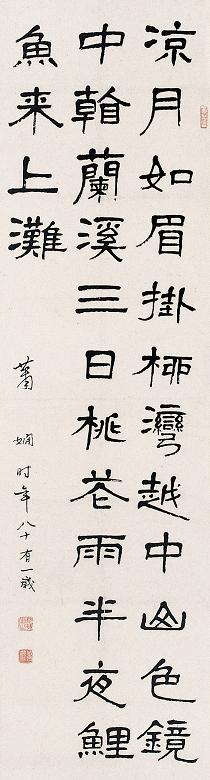 涼月如眉掛柳灣越中山色鏡
中看蘭溪三日桃花雨半夜鯉
魚来上灘
蕭嫻时年八十有一歲